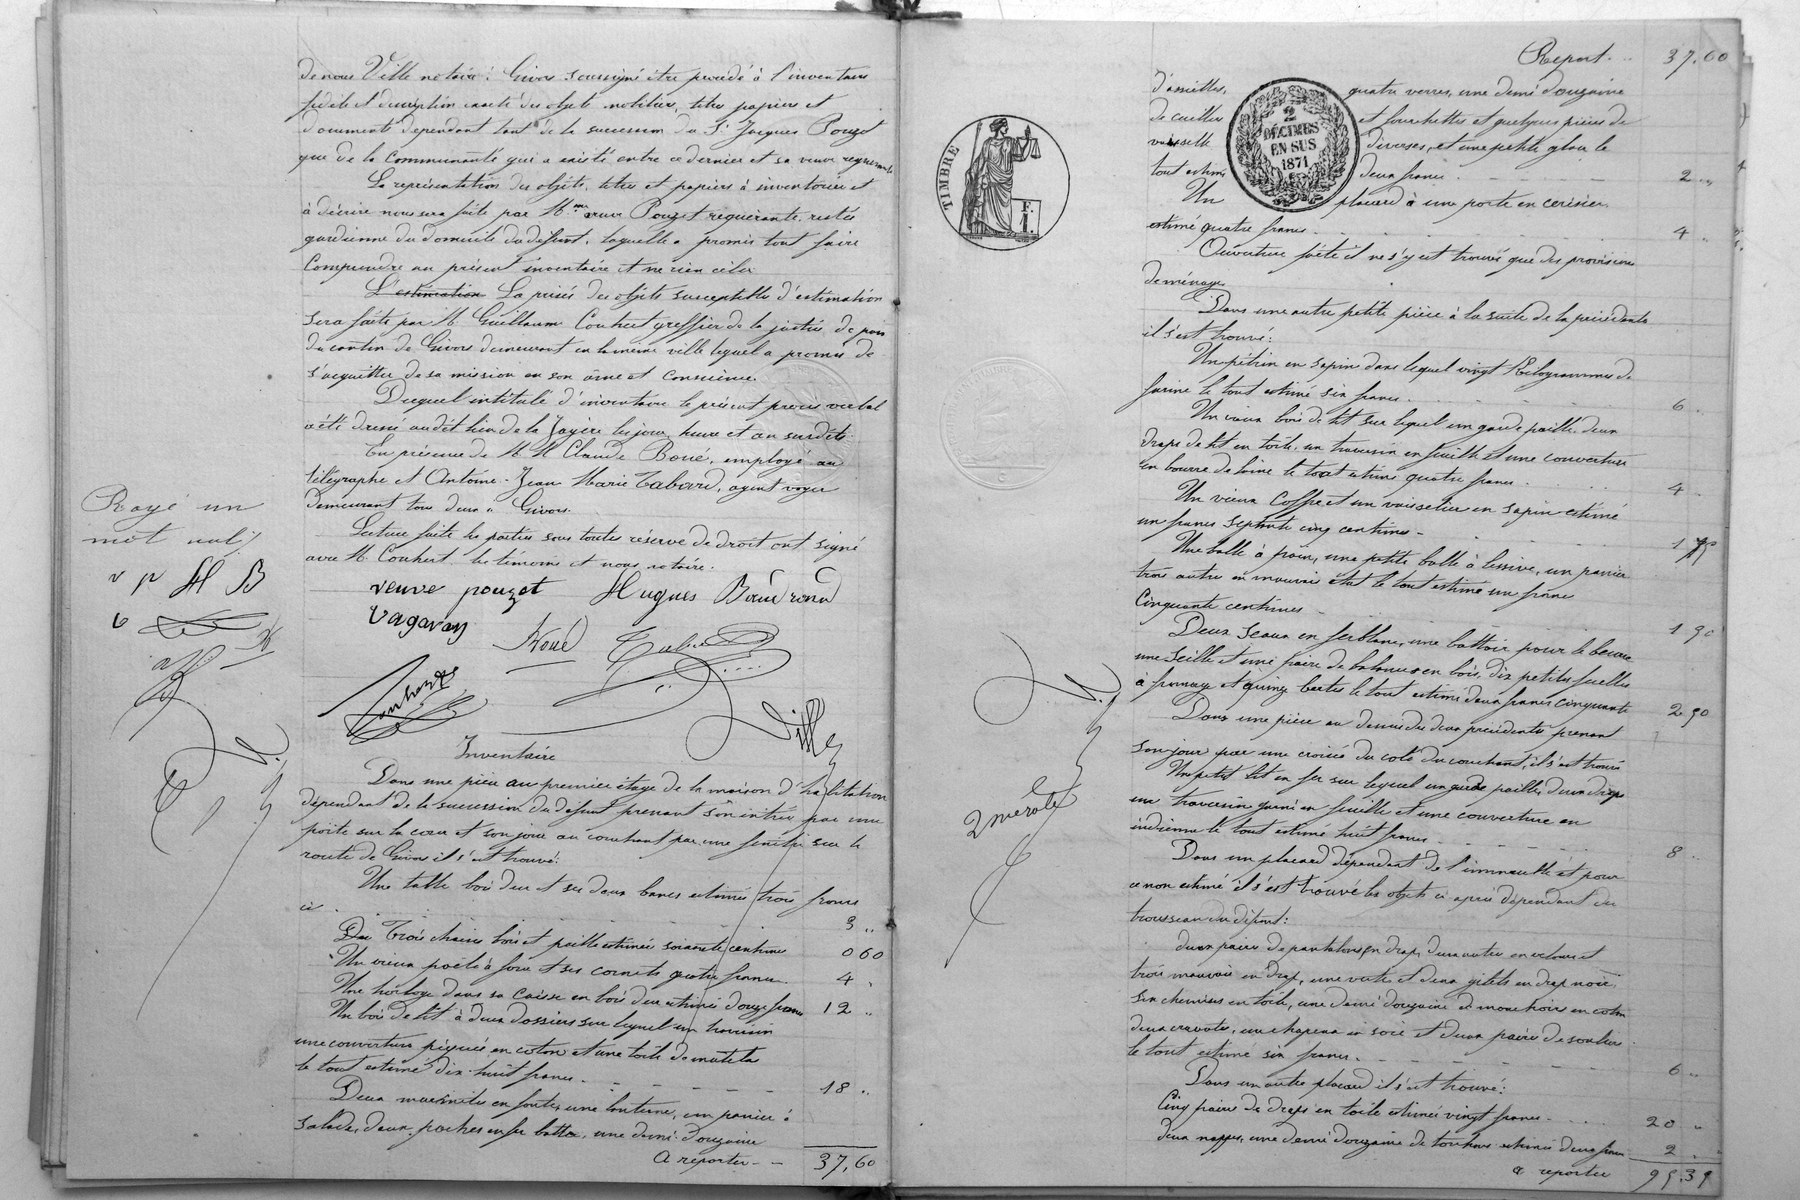 de nous Ville notaire à Givors soussigné être procédé à l'inventaire
fidèle et description exacte des objets mobiliers, titres papiers et
documents dépendant tant de la succession du Sr Jacques Pouzet
que de la communauté qui a existé entre ce dernier et sa veuve requérante
La représentation des objets, titres et papiers à inventorier et
à décrire nous sera faite par Mme veuve Pouzet requérante, restée
gardienne du domicile du défunt, laquelle a promis tout faire
comprendre au présent inventaire et ne rien céler
L'estimation La prisée des objets susceptibles d'estimation
sera faite par M. Guillaume Couhert greffier de la justice de paix
du canton de Givors demeurant en la même ville lequel a promis de
s'acquitter de sa mission en son âme et conscience.
Duquel intitulé d'inventaire le présent procès verbal
a été dressé audit lieu de la Jayère les jour, heure et an susdits.
En présence de M. M. Claude Boué, employé au
télégraphe et Antoine-Jean Marie Tabard, agent voyer
demeurant tous deux à Givors.
Lecture faite les parties sous toutes réserve de droit ont signé
avec M. Couhert les témoins et nous notaire.
Rayé un
mot nul
v p H B
veuve pouzet Hugues
vagavay
Boué
Ville
Inventaire
Dans une pièce au premier étage de la maison d'habitation
dépendant de la succession du défunt prenant son entrée par une
porte sur la cour et son jour au couchant par une fenêtre sur la
route de Givors il s'est trouvé:
Une table bois dur et ses deux bancs estimés trois francs
ci 3 "
Trois chaises bois et paille estimées soixante centimes 0 60
Un vieux poêle à four et ses cornets quatre francs 4 "
Une horloge dans sa caisse en bois dur estimée douze francs 12 "
Un bois de lit à deux dossiers sur lequel un traversin
une couverture piquée en coton et une toile de matelas
le tout estimé dix-huit francs 18 "
Deux marmites en fonte, une lanterne, un panier à
salade, deux poches en fer battu, une demi-douzaine
A reporter -- 37,60
Report 37,60
TIMBRE
2
DÉCIMES
EN SUS
1871
d'assiettes, quatre verres, une demi douzaine
de cuillers et fourchettes et quelques pièces de
vaisselle diverses, et une petite glace le
tout estimé deux francs 2 "
Un placard à une porte en cerisier
estimé quatre francs 4 "
Ouverture faite il ne s'y est trouvé que des provisions
de ménage
Dans une autre petite pièce à la suite de la précédente
il s'est trouvé:
Un pétrin en sapin dans lequel vingt kilogrammes de
farine le tout estimé six francs 6 "
Un vieux bois de lit sur lequel un garde paille, deux
draps de lit en toile, un traversin en feuille et une couverture
en bourre de laine le tout estimé quatre francs 4 "
Un vieux coffre et un vaisselier en sapin estimé
un franc septante cinq centimes 1 75
Une balle à pain, une petite balle à lessive, un panier
trois autres en mauvais état le tout estimé un franc
cinquante centimes 1 50
Deux seaux en ferblanc, une battoir pour le beurre
une seille et une paire de balances en bois, dix petites seilles
à fromage et quinze bertes le tout estimé deux francs cinquante 2 50
Dans une pièce au dessus des deux précédentes prenant
son jour par une croisée du coté du couchant, il s'est trouvé
Un petit lit en fer sur lequel un garde paille, deux draps
un traversin garni en feuille et une couverture en
indienne le tout estimé huit francs 8 "
2me rôle
Dans un placard dépendant de l'immeuble et pour
ce non estimé il s'est trouvé les objets ci après dépendant du
trousseau du défunt:
deux paires de pantalons en drap, deux autres en velours et
trois mauvais en drap, une veste et deux gilets en drap noir,
six chemises en toile, une demi douzaine de mouchoirs en coton
deux cravates, un chapeau en soie et deux paires de souliers
le tout estimé six francs 6 "
Dans un autre placard il s'est trouvé:
Cinq paires de draps en toile estimés vingt francs 20 "
deux nappes, une demi douzaine de torchons estimés deux francs 2 "
A reporter 95,35